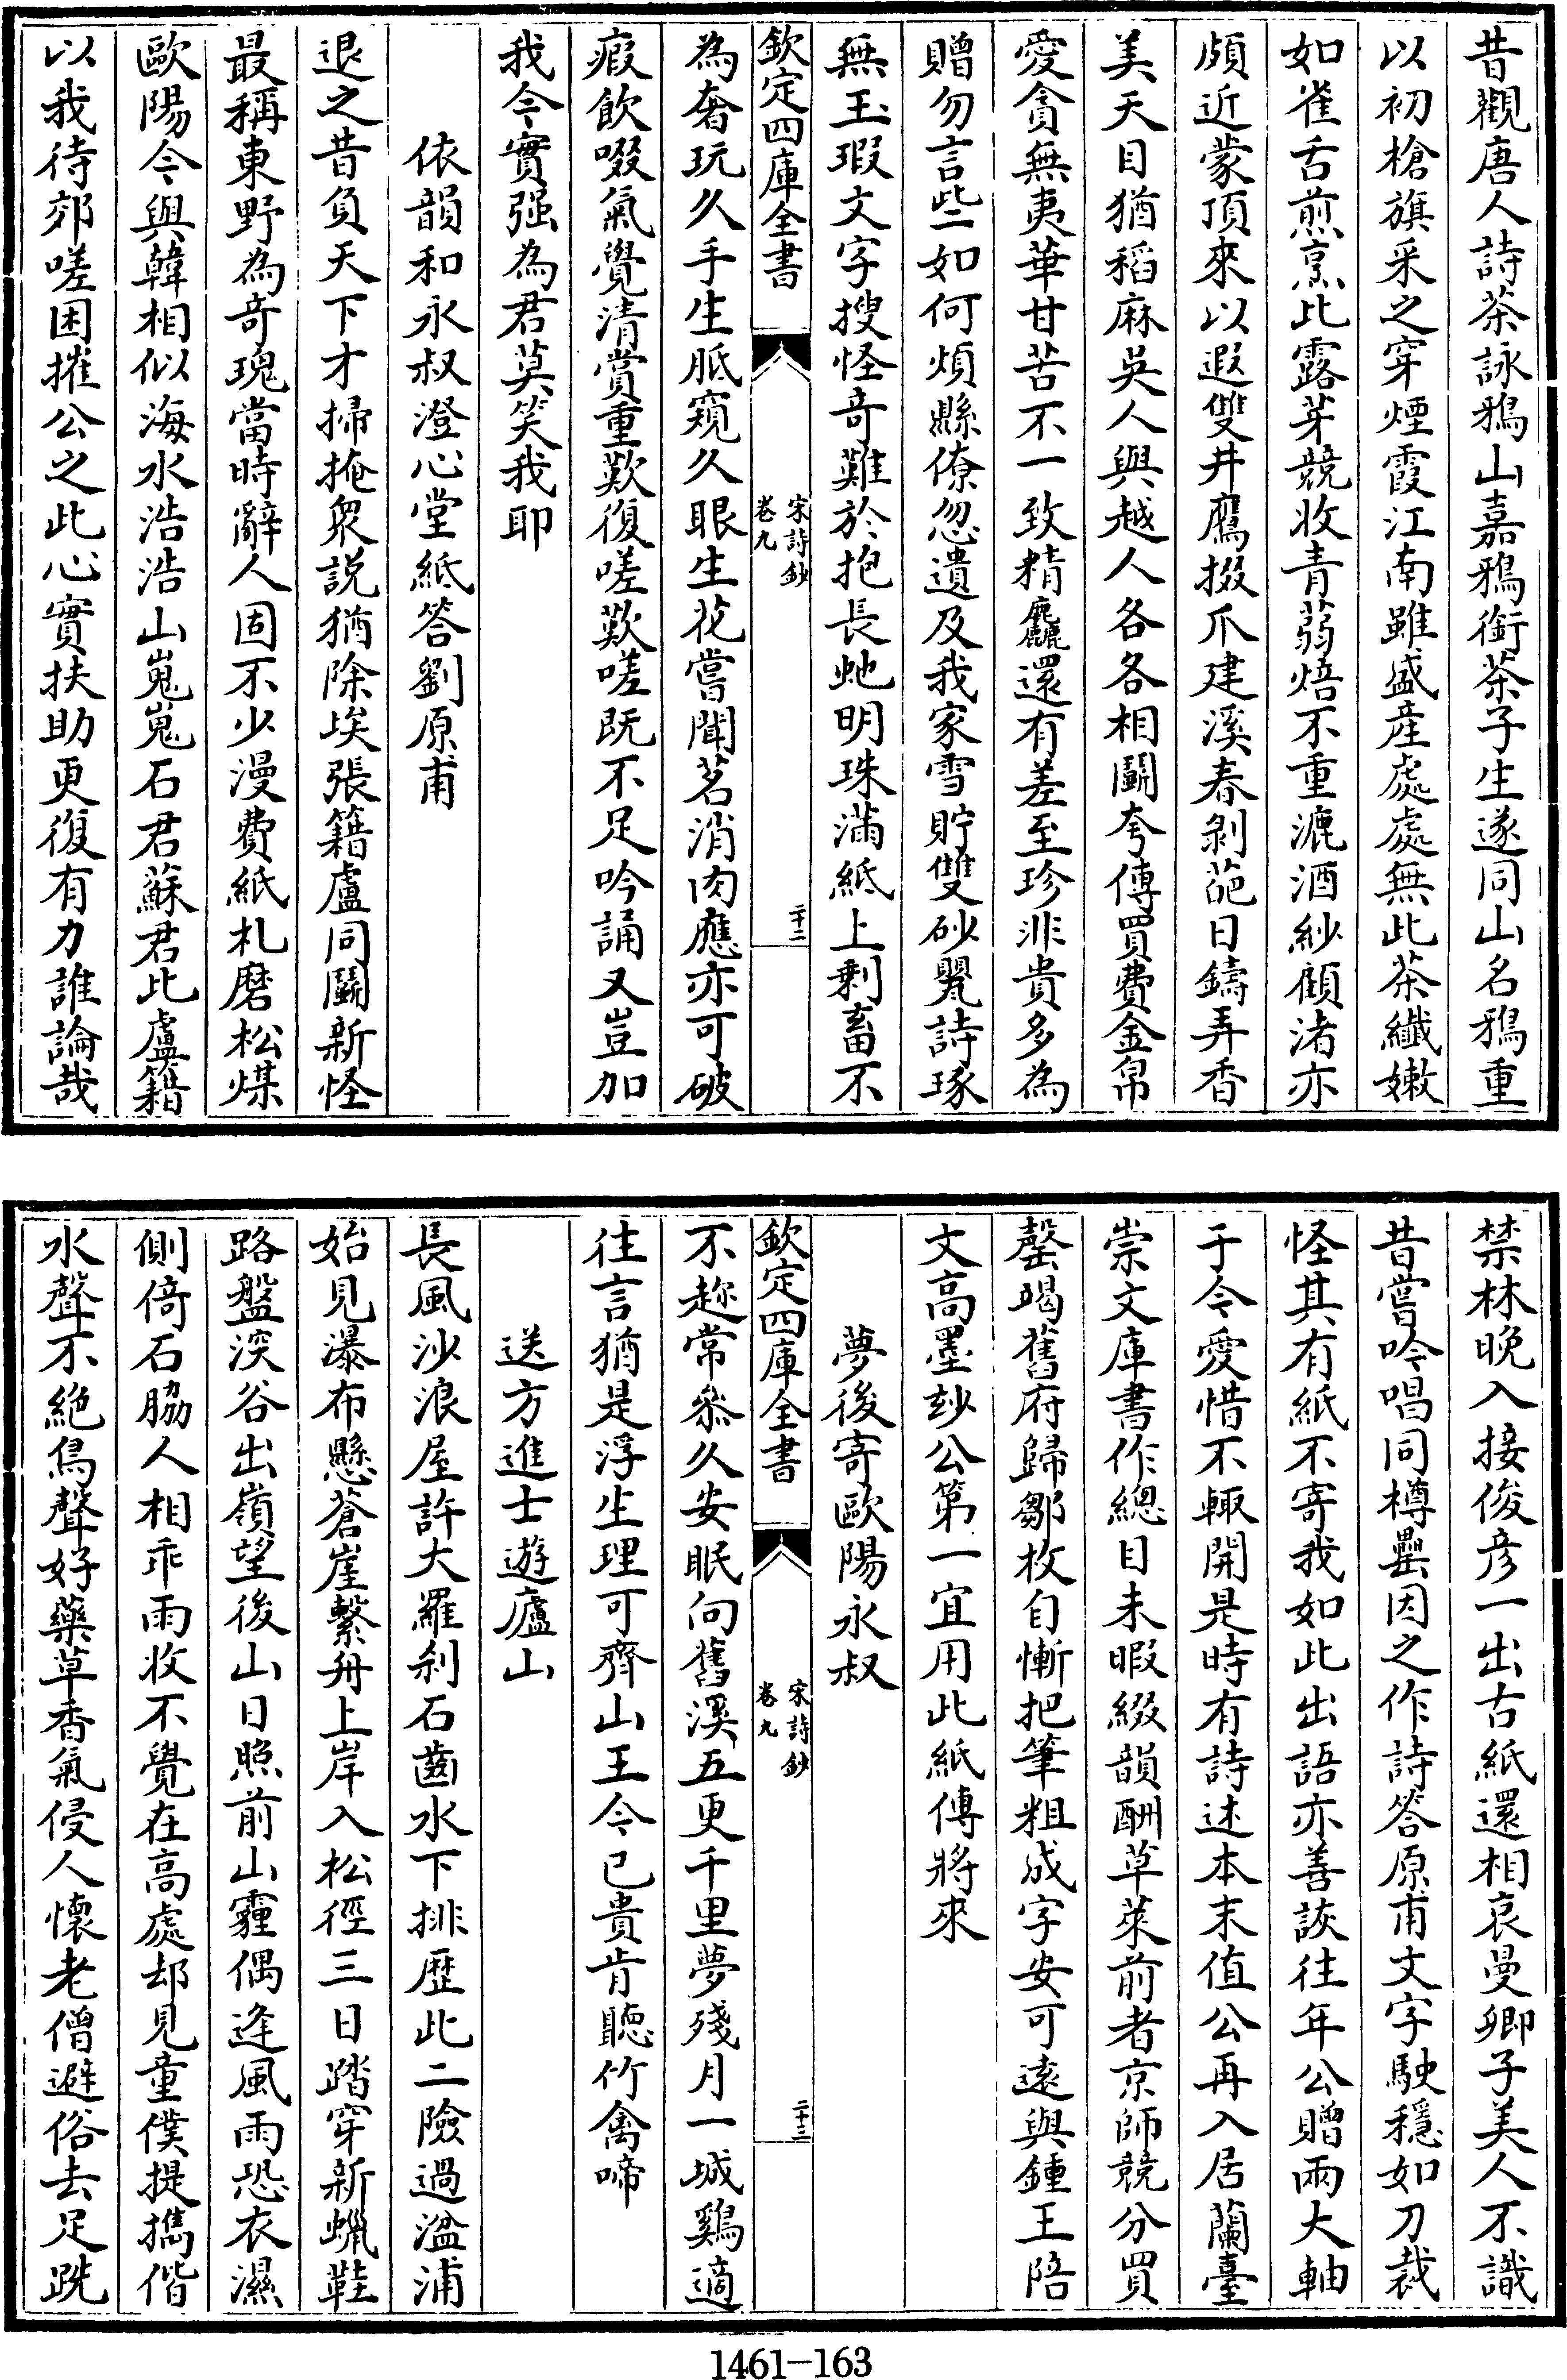 昔觀唐人詩茶詠鴉山嘉鴉銜茶子生遂同山名鴉重
以初槍旗采之穿煙霞江南雖盛產處處無此茶纖嫩
如雀舌煎烹比露芽競收青蒻焙不重漉酒紗顧渚亦
頗近蒙頂來以遐雙井鷹掇爪建溪春剝葩日鑄弄香
美天目猶稻麻吳人與越人各各相鬬夸傳買費金帛
愛貪無夷華甘苦不一致精麤還有差至珍非貴多為
贈勿言些如何煩縣僚忽遺及我家雪貯雙砂甖詩琢
無玉瑕文字搜怪奇難於抱長虵明珠滿紙上剩畜不
欽定四庫全書
宋詩鈔
卷九
二十二
為奢玩久手生胝窺久眼生花嘗聞茗消肉應亦可破
瘕飲啜氣覺清賞重歎復嗟歎嗟既不足吟誦又豈加
我今實强為君莫笑我耶
依韻和永叔澄心堂紙答劉原甫
退之昔負天下才掃掩衆説猶除埃張籍盧同鬬新怪
最稱東野為奇瑰當時辭人固不少漫費紙札磨松煤
歐陽今與韓相似海水浩浩山嵬嵬石君蘇君比盧籍
以我待郊嗟困摧公之此心實扶助更復有力誰論哉
禁林晚入接俊彦一出古紙還相哀曼卿子美人不識
昔嘗吟唱同樽罍因之作詩答原甫文字駛穩如刀裁
怪其有紙不寄我如此出語亦善詼往年公贈兩大軸
于今愛惜不輙開是時有詩述本末值公再入居蘭臺
崇文庫書作總目未暇綴韻酬草萊前者京師競分買
罄竭舊府歸鄒枚自慚把筆粗成字安可遠與鍾王陪
文高墨妙公第一宜用此紙傳將來
夢後寄歐陽永叔
欽定四庫全書
宋詩鈔
卷九
二十三
不趂常叅久安眠向舊溪五更千里夢殘月一城鷄適
往言猶是浮生理可齊山王今已貴肯聽竹禽啼
送方進士遊廬山
長風沙浪屋許大羅刹石齒水下排歷此二險過湓浦
始見瀑布懸蒼崖繫舟上岸入松徑三日踏穿新蠟鞋
路盤深谷出嶺望後山日照前山霾偶逢風雨恐衣濕
側倚石脇人相乖雨收不覺在高處却見童僕提攜偕
水聲不絶鳥聲好藥草香氣侵人懷老僧避俗去足跣
1461-163